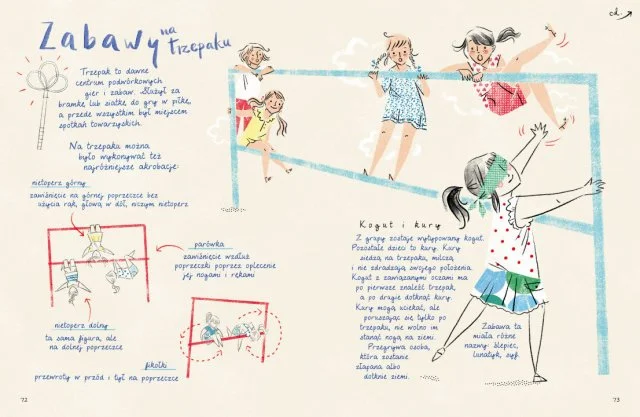 Zabawy na
trzepaku
cd.
Trzepak to dawne
centrum podwórkowych
gier i zabaw. Służył za
bramkę lub siatkę do gry w piłkę,
a przede wszystkim był miejscem
spotkań towarzyskich.
Na trzepaku można
było wykonywać też
najróżniejsze akrobacje:
nietoperz górny
zawiśnięcie na górnej poprzeczce bez
użycia rąk, głową w dół, niczym nietoperz
parówka
zawiśnięcie wzdłuż
poprzeczki poprzez oplecenie
jej nogami i rękami
nietoperz dolny
ta sama figura, ale
na dolnej poprzeczce
fikołki
przewroty w przód i tył na poprzeczce
72
Kogut i kury
Z grupy zostaje wytypowany kogut.
Pozostałe dzieci to kury. Kury
siedzą na trzepaku, milczą
i nie zdradzają swojego położenia.
Kogut z zawiązanymi oczami ma
po pierwsze znaleźć trzepak,
a po drugie dotknąć kury.
Kury mogą uciekać, ale
poruszając się tylko po
trzepaku, nie wolno im
stanąć nogą na ziemi.
Przegrywa osoba,
która zostanie
złapana albo
dotknie ziemi.
Zabawa ta
miała różne
nazwy: ślepiec,
lunatyk, syf.
73